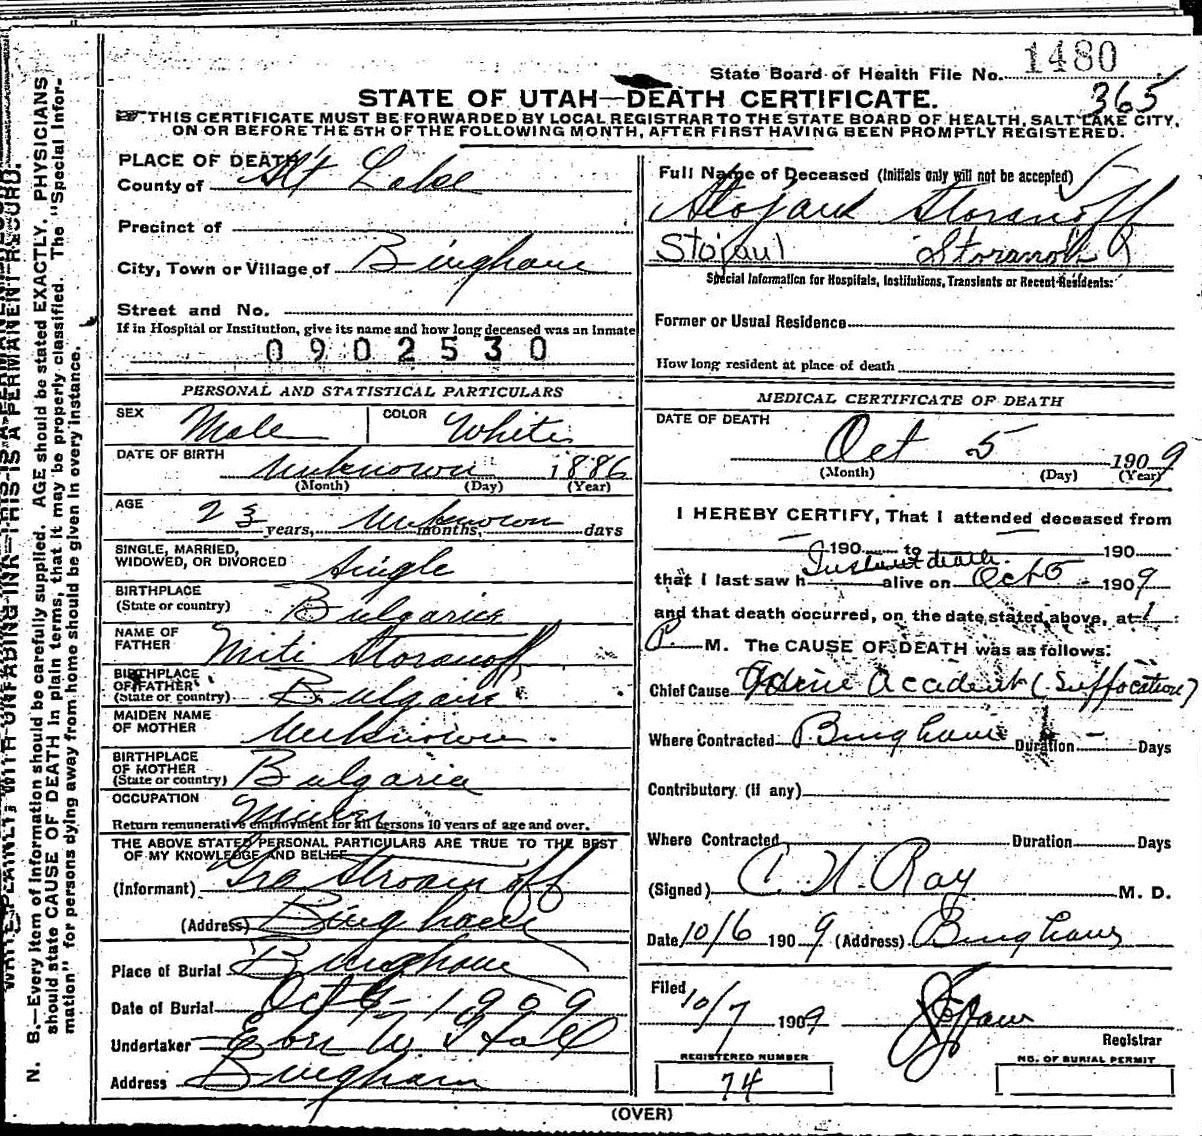 State Board of Health File No. 1480
365
STATE OF UTAH—DEATH CERTIFICATE.
THIS CERTIFICATE MUST BE FORWARDED BY LOCAL REGISTRAR TO THE STATE BOARD OF HEALTH, SALT LAKE CITY,
ON OR BEFORE THE 5TH OF THE FOLLOWING MONTH, AFTER FIRST HAVING BEEN PROMPTLY REGISTERED.
WRITE PLAINLY, WITH UNFADING INK—THIS IS A PERMANENT RECORD.
N. B.—Every item of information should be carefully supplied. AGE should be stated EXACTLY. PHYSICIANS
should state CAUSE OF DEATH in plain terms, that it may be properly classified. The "Special Infor-
mation" for persons dying away from home should be given in every instance.
PLACE OF DEATH
County of Slt Lake
Precinct of
City, Town or Village of Bingham
Street and No.
If in Hospital or Institution, give its name and how long deceased was an inmate
0902530
PERSONAL AND STATISTICAL PARTICULARS
SEX Male COLOR White
DATE OF BIRTH Unknown 1886
(Month) (Day) (Year)
AGE 23 years, Unknown months, days
SINGLE, MARRIED,
WIDOWED, OR DIVORCED Single
BIRTHPLACE
(State or country) Bulgaria
NAME OF
FATHER Miti Storanoff
BIRTHPLACE
OF FATHER
(State or country) Bulgaria
MAIDEN NAME
OF MOTHER Unknown.
BIRTHPLACE
OF MOTHER
(State or country) Bulgaria
OCCUPATION Miner
Return remunerative employment for all persons 10 years of age and over.
THE ABOVE STATED PERSONAL PARTICULARS ARE TRUE TO THE BEST
OF MY KNOWLEDGE AND BELIEF
(Informant)
(Address) Bingham
Place of Burial Bingham
Date of Burial Oct 1909
Undertaker
Address Bingham
Full Name of Deceased (Initials only will not be accepted)
Storanoff
Stojaul
Special Information for Hospitals, Institutions, Transients or Recent Residents:
Former or Usual Residence
How long resident at place of death
MEDICAL CERTIFICATE OF DEATH
DATE OF DEATH
Oct 5 1909
(Month) (Day) (Year)
I HEREBY CERTIFY, That I attended deceased from
— 190 to 190
Instant death.
that I last saw h alive on Oct 5 1909
and that death occurred, on the date stated above, at 1
P. M. The CAUSE OF DEATH was as follows:
Chief Cause Accident (Suffocation)
Where Contracted Bingham Duration — Days
Contributory (if any)
Where Contracted Duration Days
(Signed) C. N. Ray M. D.
Date 10/6 1909 (Address) Bingham
Filed 10/7 1909
Registrar
REGISTERED NUMBER
74
NO. OF BURIAL PERMIT
(OVER)